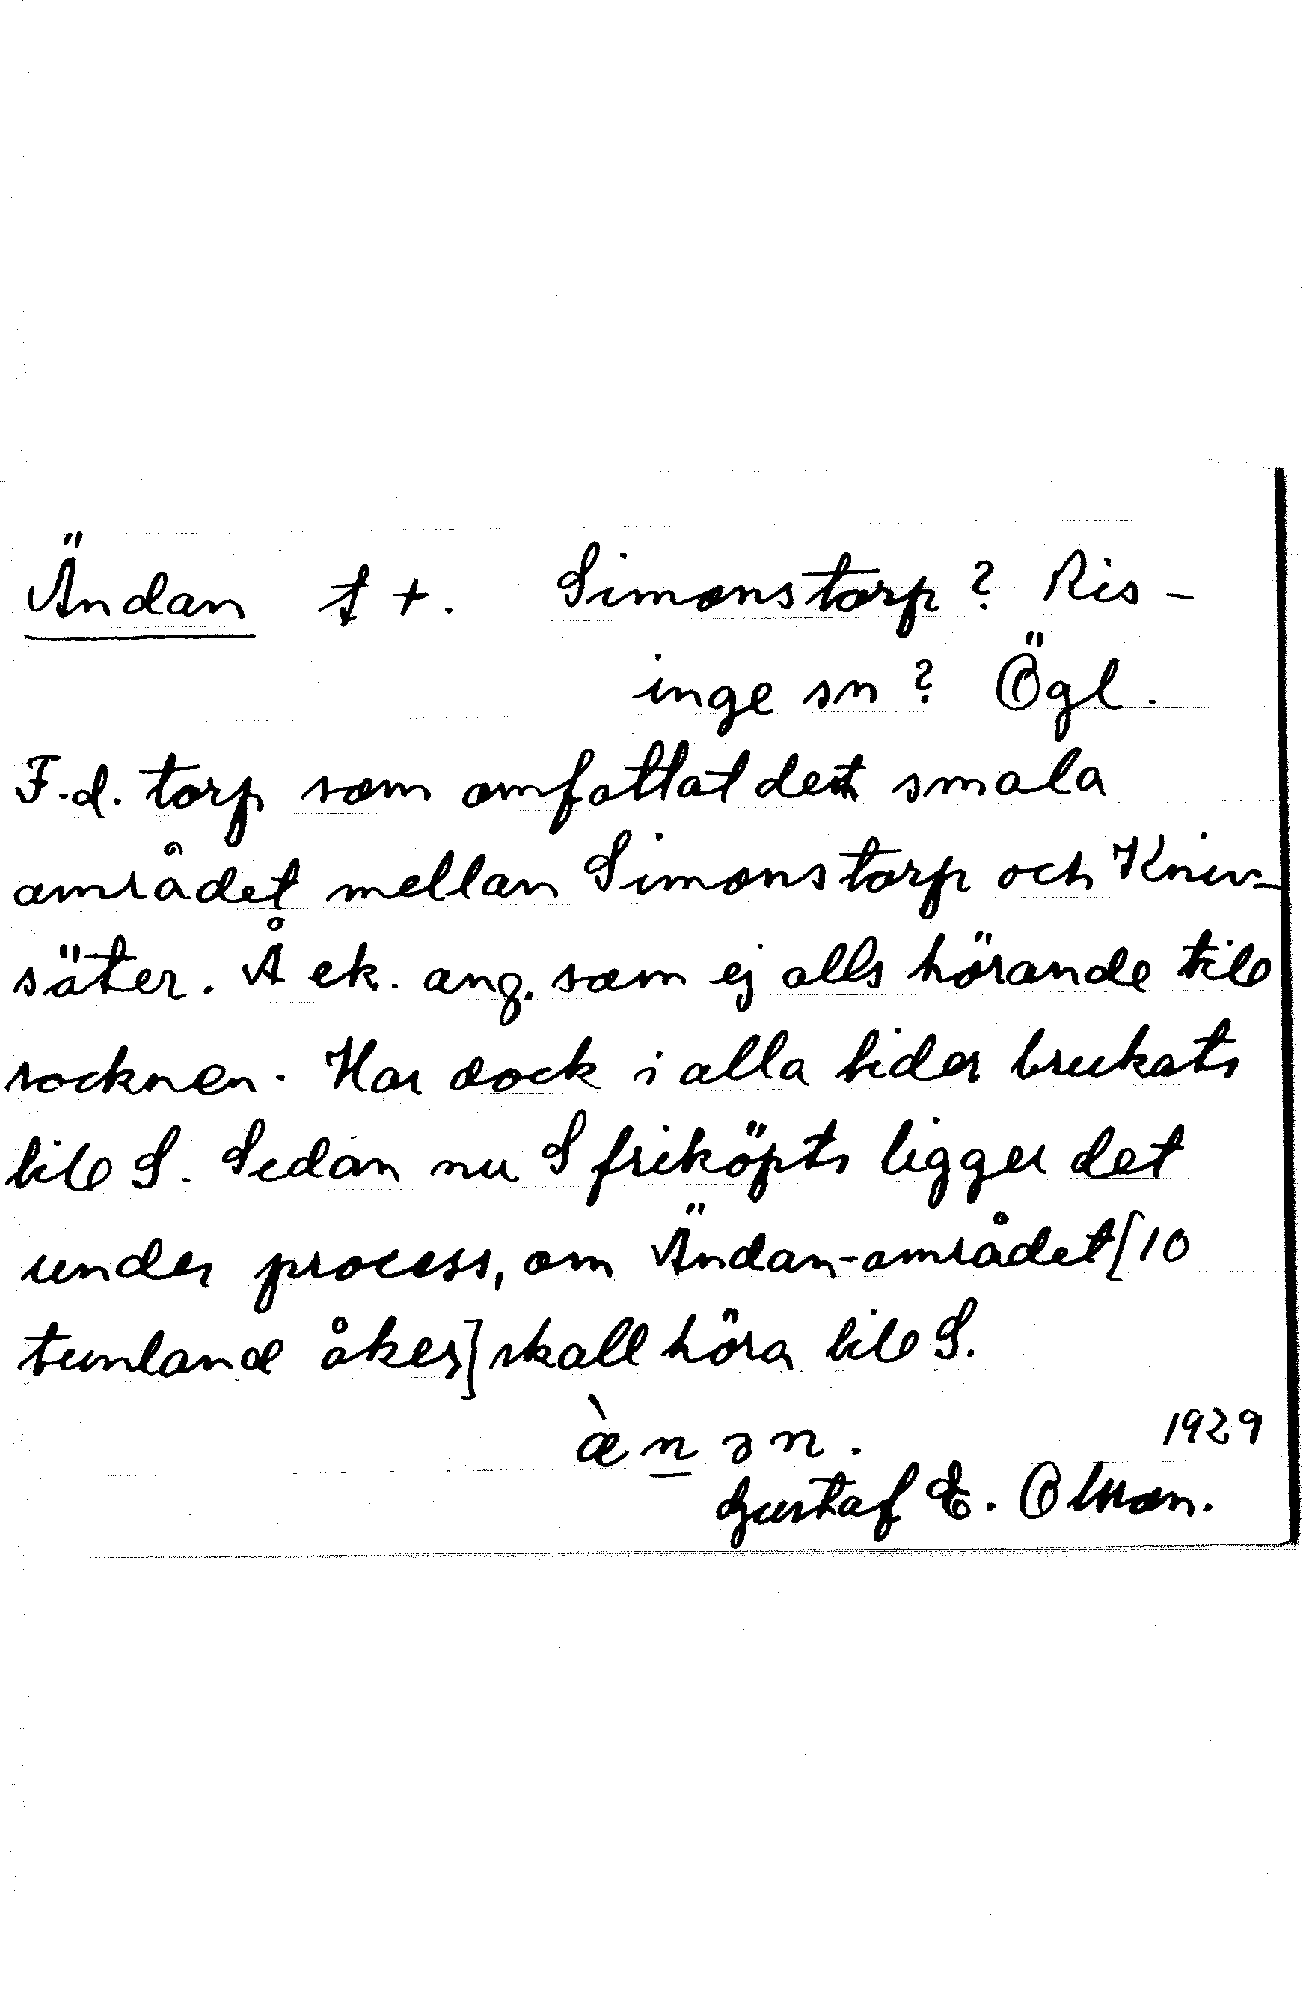 Ändan t +. Simonstorp? Ris-
inge sn? Ögl.
F.d. torp som omfattat det smala
området mellan Simonstorp och Kniv-
säter. Å ek. ang. som ej alls hörande till
socknen. Har dock i alla tider brukats
till S. Sedan nu S friköpts ligger det
under process, om Ändan-området [10
tunland åker] skall höra till S.
æ̀nən.
1929
Gustaf E. Olsson.